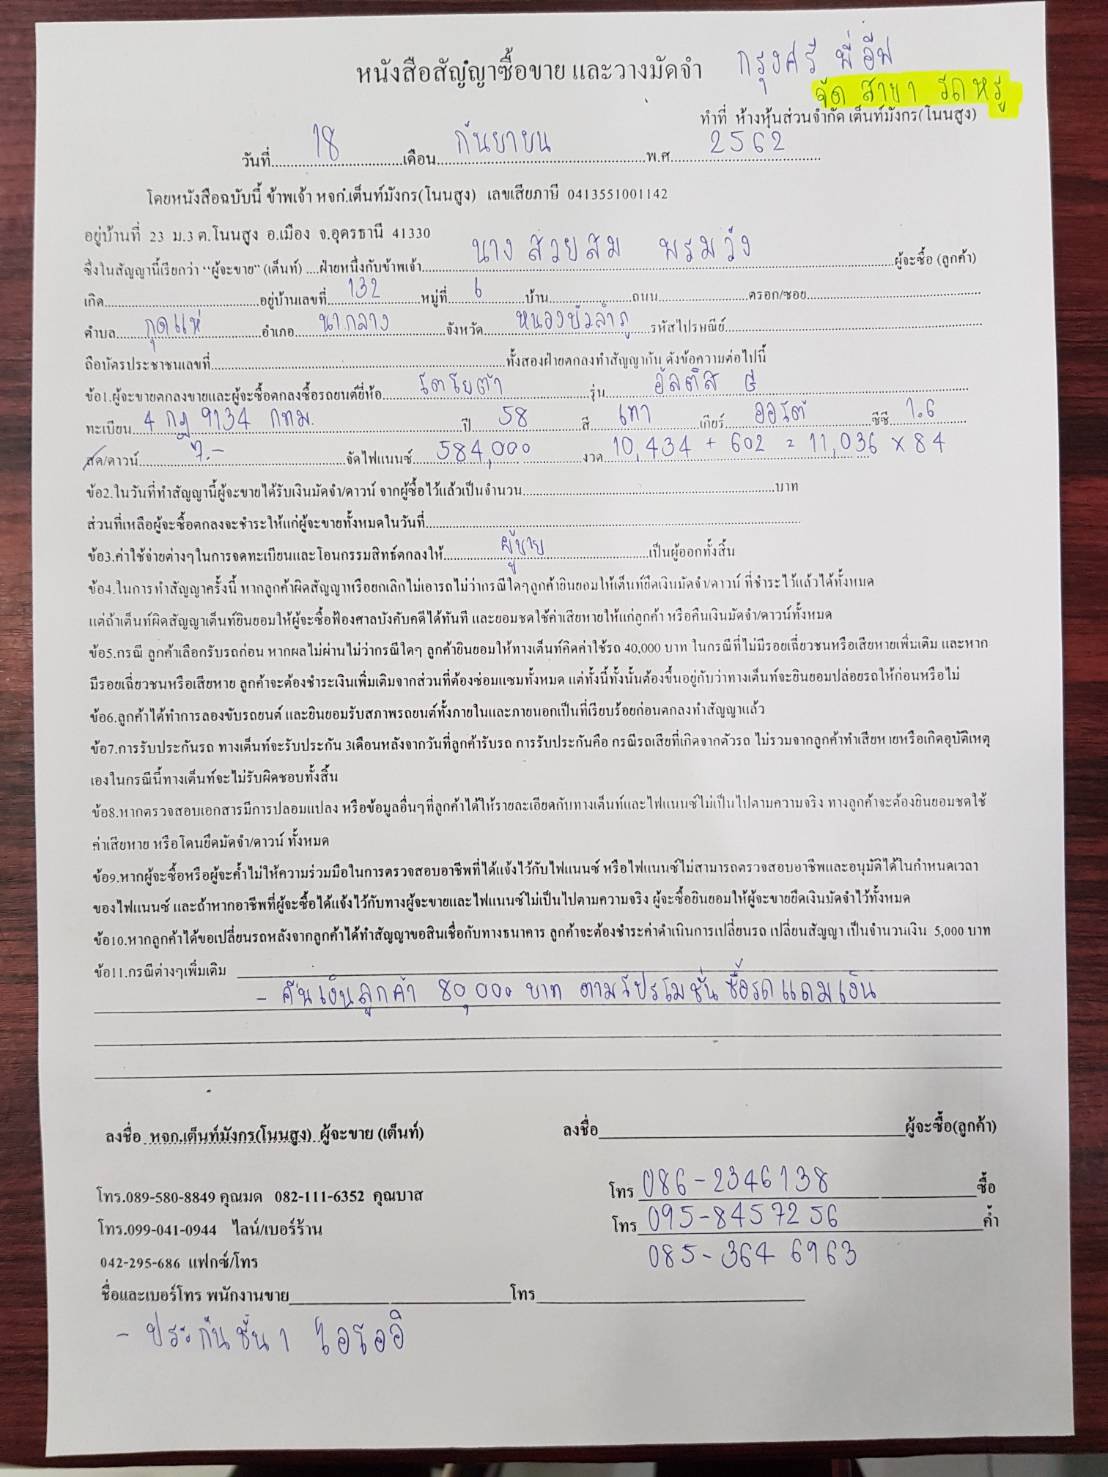 หนังสือสัญญาซื้อขาย และวางมัดจำ กรุงศรี พี่อีฟ
จัด สาขา รถหรู
ทำที่ ห้างหุ้นส่วนจำกัด เต็นท์มังกร(โนนสูง)
วันที่ 18 เดือน กันยายน พ.ศ. 2562
โดยหนังสือฉบับนี้ ข้าพเจ้า หจก.เต็นท์มังกร(โนนสูง) เลขเสียภาษี 0413551001142
อยู่บ้านที่ 23 ม.3 ต.โนนสูง อ.เมือง จ.อุดรธานี 41330
ซึ่งในสัญญานี้เรียกว่า "ผู้จะขาย" (เต็นท์) ....ฝ่ายหนึ่งกับข้าพเจ้า นาง สวยสม พรมวัง ผู้จะซื้อ (ลูกค้า)
เกิด อยู่บ้านเลขที่ 132 หมู่ที่ 6 บ้าน ถนน ตรอก/ซอย
ตำบล กุดแห่ อำเภอ นากลาง จังหวัด หนองบัวลำภู รหัสไปรษณีย์
ถือบัตรประชาชนเลขที่ ทั้งสองฝ่ายตกลงทำสัญญากัน ดังข้อความต่อไปนี้
ข้อ1.ผู้จะขายตกลงขายและผู้จะซื้อตกลงซื้อรถยนต์ยี่ห้อ โตโยต้า รุ่น อัลติส G
ทะเบียน 4 กฎ 9134 กทม. ปี 58 สี เทา เกียร์ ออโต้ ซีซี 1.6
สด/ดาวน์ จัดไฟแนนซ์ 584,000 งวด 10,434 + 602 = 11,036 × 84
ข้อ2.ในวันที่ทำสัญญานี้ผู้จะขายได้รับเงินมัดจำ/ดาวน์ จากผู้ซื้อไว้แล้วเป็นจำนวน บาท
ส่วนที่เหลือผู้จะซื้อตกลงจะชำระให้แก่ผู้จะขายทั้งหมดในวันที่
ข้อ3.ค่าใช้จ่ายต่างๆในการจดทะเบียนและโอนกรรมสิทธิ์ตกลงให้ ผู้ขาย เป็นผู้ออกทั้งสิ้น
ข้อ4.ในการทำสัญญาครั้งนี้ หากลูกค้าผิดสัญญาหรือยกเลิกไม่เอารถไม่ว่ากรณีใดๆลูกค้ายินยอมให้เต็นท์ยึดเงินมัดจำ/ดาวน์ ที่ชำระไว้แล้วได้ทั้งหมด
แต่ถ้าเต็นท์ผิดสัญญาเต็นท์ยินยอมให้ผู้จะซื้อฟ้องศาลบังคับคดีได้ทันที และยอมชดใช้ค่าเสียหายให้แก่ลูกค้า หรือคืนเงินมัดจำ/ดาวน์ทั้งหมด
ข้อ5.กรณี ลูกค้าเลือกรับรถก่อน หากผลไม่ผ่านไม่ว่ากรณีใดๆ ลูกค้ายินยอมให้ทางเต็นท์คิดค่าใช้รถ 40,000 บาท ในกรณีที่ไม่มีรอยเฉี่ยวชนหรือเสียหายเพิ่มเติม และหาก
มีรอยเฉี่ยวชนหรือเสียหาย ลูกค้าจะต้องชำระเงินเพิ่มเติมจากส่วนที่ต้องซ่อมแซมทั้งหมด แต่ทั้งนี้ทั้งนั้นต้องขึ้นอยู่กับว่าทางเต็นท์จะยินยอมปล่อยรถให้ก่อนหรือไม่
ข้อ6.ลูกค้าได้ทำการลองขับรถยนต์ และยินยอมรับสภาพรถยนต์ทั้งภายในและภายนอกเป็นที่เรียบร้อยก่อนตกลงทำสัญญาแล้ว
ข้อ7.การรับประกันรถ ทางเต็นท์จะรับประกัน 3เดือนหลังจากวันที่ลูกค้ารับรถ การรับประกันคือ กรณีรถเสียที่เกิดจากตัวรถ ไม่รวมจากลูกค้าทำเสียหายหรือเกิดอุบัติเหตุ
เองในกรณีนี้ทางเต็นท์จะไม่รับผิดชอบทั้งสิ้น
ข้อ8.หากตรวจสอบเอกสารมีการปลอมแปลง หรือข้อมูลอื่นๆที่ลูกค้าได้ให้รายละเอียดกับทางเต็นท์และไฟแนนซ์ไม่เป็นไปตามความจริง ทางลูกค้าจะต้องยินยอมชดใช้
ค่าเสียหาย หรือโดนยึดมัดจำ/ดาวน์ ทั้งหมด
ข้อ9.หากผู้จะซื้อหรือผู้จะค้ำไม่ให้ความร่วมมือในการตรวจสอบอาชีพที่ได้แจ้งไว้กับไฟแนนซ์ หรือไฟแนนซ์ไม่สามารถตรวจสอบอาชีพและอนุมัติได้ในกำหนดเวลา
ของไฟแนนซ์ และถ้าหากอาชีพที่ผู้จะซื้อได้แจ้งไว้กับทางผู้จะขายและไฟแนนซ์ไม่เป็นไปตามความจริง ผู้จะซื้อยินยอมให้ผู้จะขายยึดเงินมัดจำไว้ทั้งหมด
ข้อ10.หากลูกค้าได้ขอเปลี่ยนรถหลังจากลูกค้าได้ทำสัญญาขอสินเชื่อกับทางธนาคาร ลูกค้าจะต้องชำระค่าดำเนินการเปลี่ยนรถ เปลี่ยนสัญญา เป็นจำนวนเงิน 5,000 บาท
ข้อ11.กรณีต่างๆเพิ่มเติม
- คืนเงินลูกค้า 80,000 บาท ตามโปรโมชั่น ซื้อรถแถมเงิน
ลงชื่อ หจก.เต็นท์มังกร(โนนสูง) ผู้จะขาย (เต็นท์) ลงชื่อ ผู้จะซื้อ(ลูกค้า)
โทร.089-580-8849 คุณมด 082-111-6352 คุณบาส โทร 086-2346138 ซื้อ
โทร.099-041-0944 ไลน์/เบอร์ร้าน โทร 095-8457256 ค้ำ
042-295-686 แฟกซ์/โทร 085-364 6963
ชื่อและเบอร์โทร พนักงานขาย โทร
- ประกันชั้น 1 ไอโออิ